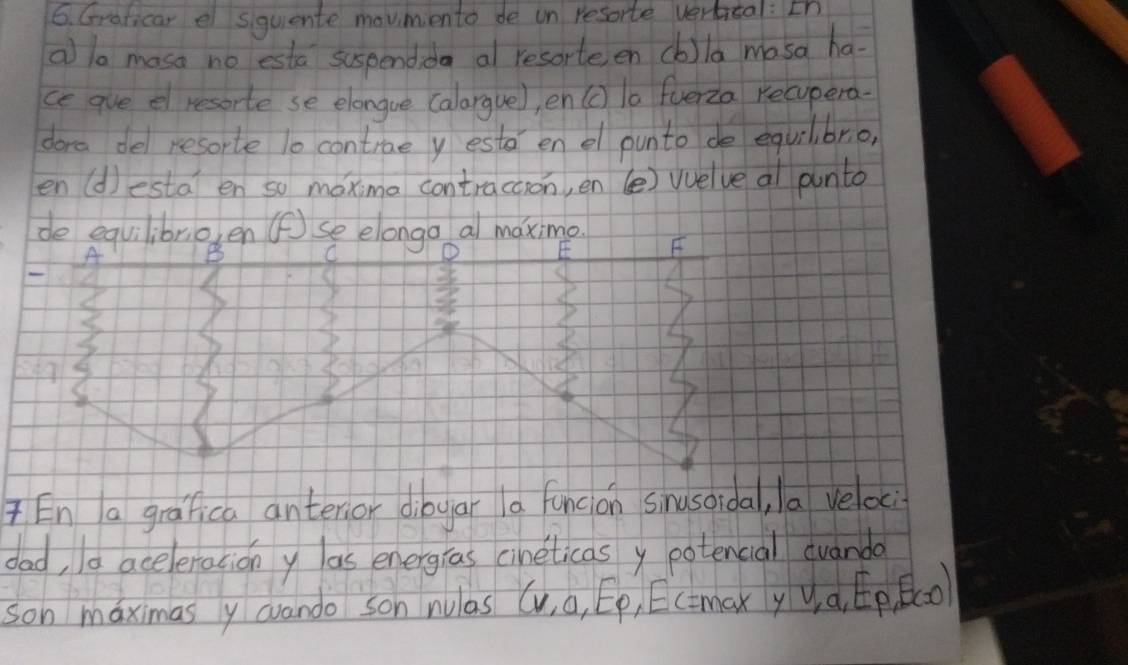 6. Graficar el siguiente movimiento de un resorte vertical: En
a) la masa no está suspendida al resorte, en (b) la masa ha-
ce que el resorte se elongue (alargue), en (c) la fuerza recupera-
dora del resorte lo contrae y está en el punto de equilibrio,
en (d) está en su máxima contracción, en (e) vuelve al punto
de equilibrio, en (f) se elonga al máximo.
A B C D E F
-
7 En la gráfica anterior dibujar la función sinusoidal, la veloci-
dad, la aceleración y las energías cinéticas y potencial cuando
son máximas y cuando son nulas (v, a, Ep, Ec=max y v, a, Ep, Ec=0)